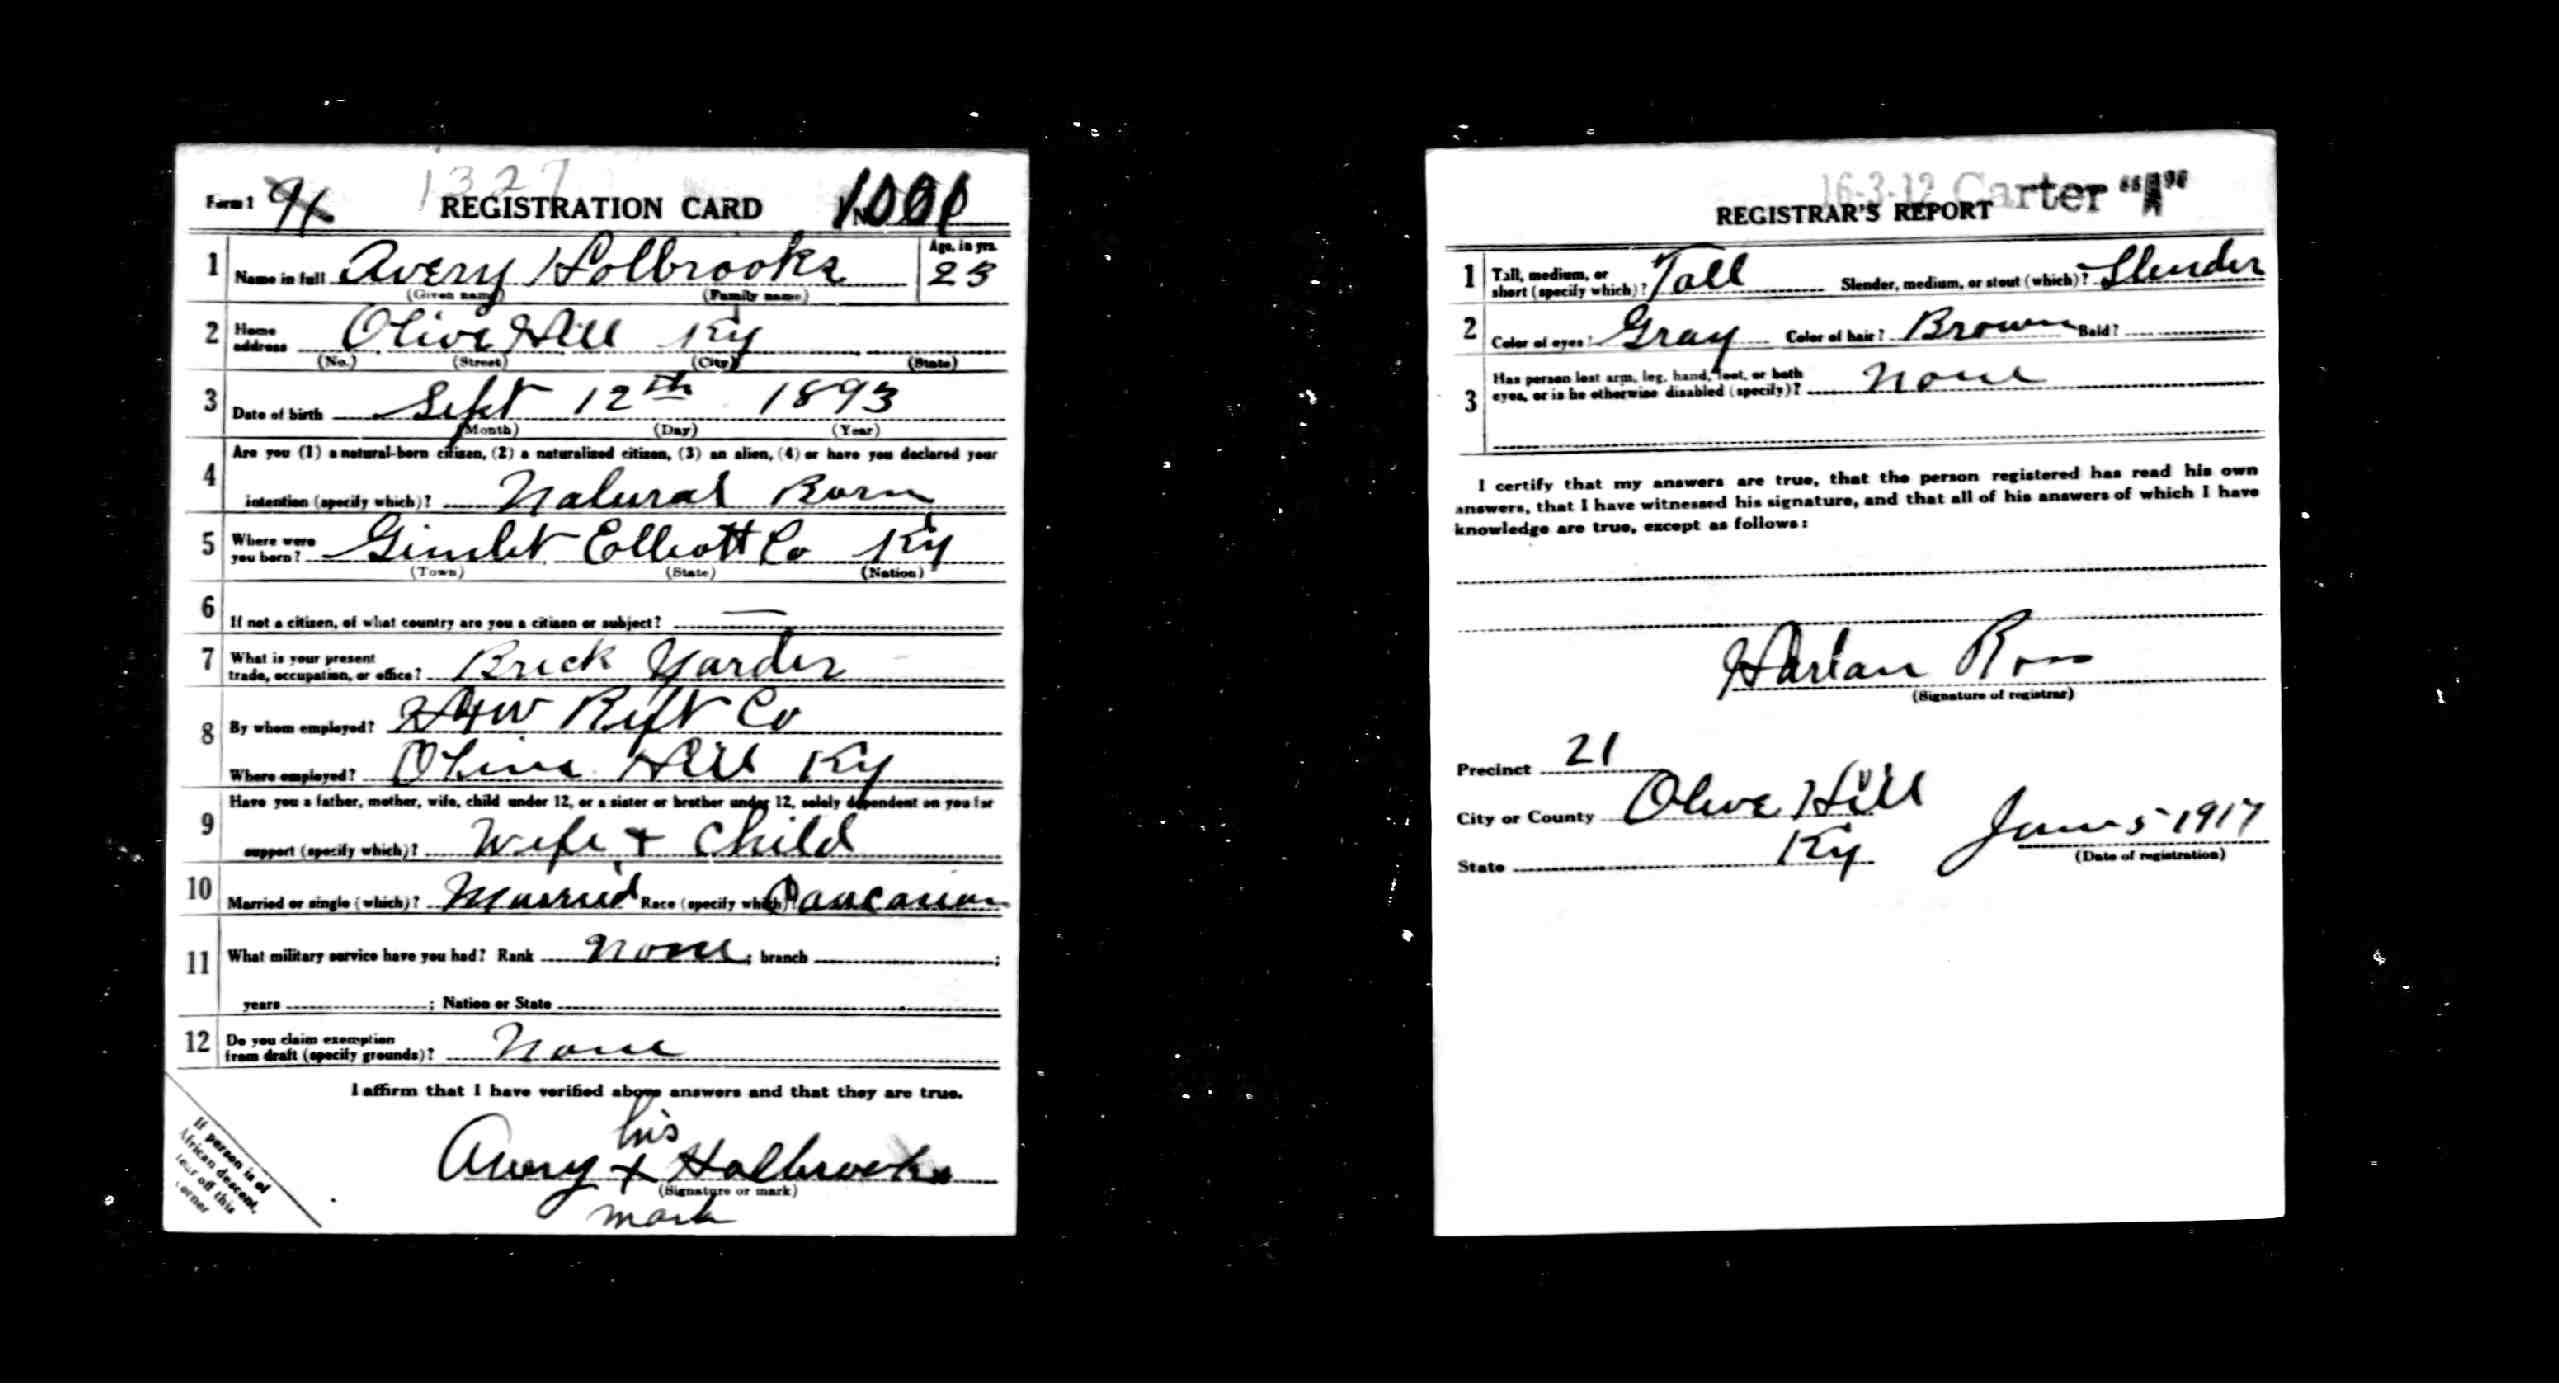 1327
Form 1 91 REGISTRATION CARD No.
1 Name in full Avery Holbrooks Age, in yrs. 23
(Given name) (Family name)
2 Home address Olive Hill Ky
(No.) (Street) (City) (State)
3 Date of birth Sept 12th 1893
(Month) (Day) (Year)
4 Are you (1) a natural-born citizen, (2) a naturalized citizen, (3) an alien, (4) or have you declared your
intention (specify which)? Natural Born
5 Where were you born? Gimlet Elliott Co Ky
(Town) (State) (Nation)
6 If not a citizen, of what country are you a citizen or subject? —
7 What is your present trade, occupation, or office? Brick Yarder
8 By whom employed? Reft Co
Where employed? Olive Hill Ky
9 Have you a father, mother, wife, child under 12, or a sister or brother under 12, solely dependent on you for
support (specify which)? Wife + Child
10 Married or single (which)? Married Race (specify which)? Caucasian
11 What military service have you had? Rank None ; branch ;
years ; Nation or State
12 Do you claim exemption from draft (specify grounds)? None
I affirm that I have verified above answers and that they are true.
his
Avery + Holbrooks
(Signature or mark)
mark
If person is of
African descent,
tear off this
corner
16-3-12 Carter "A"
REGISTRAR'S REPORT
1 Tall, medium, or short (specify which)? Tall Slender, medium, or stout (which)? Slender
2 Color of eyes? Gray Color of hair? Brown Bald?
3 Has person lost arm, leg, hand, foot, or both eyes, or is he otherwise disabled (specify)? None
I certify that my answers are true, that the person registered has read his own
answers, that I have witnessed his signature, and that all of his answers of which I have
knowledge are true, except as follows:
Harlan Ross
(Signature of registrar)
Precinct 21
City or County Olive Hill
State Ky
June 5 1917
(Date of registration)